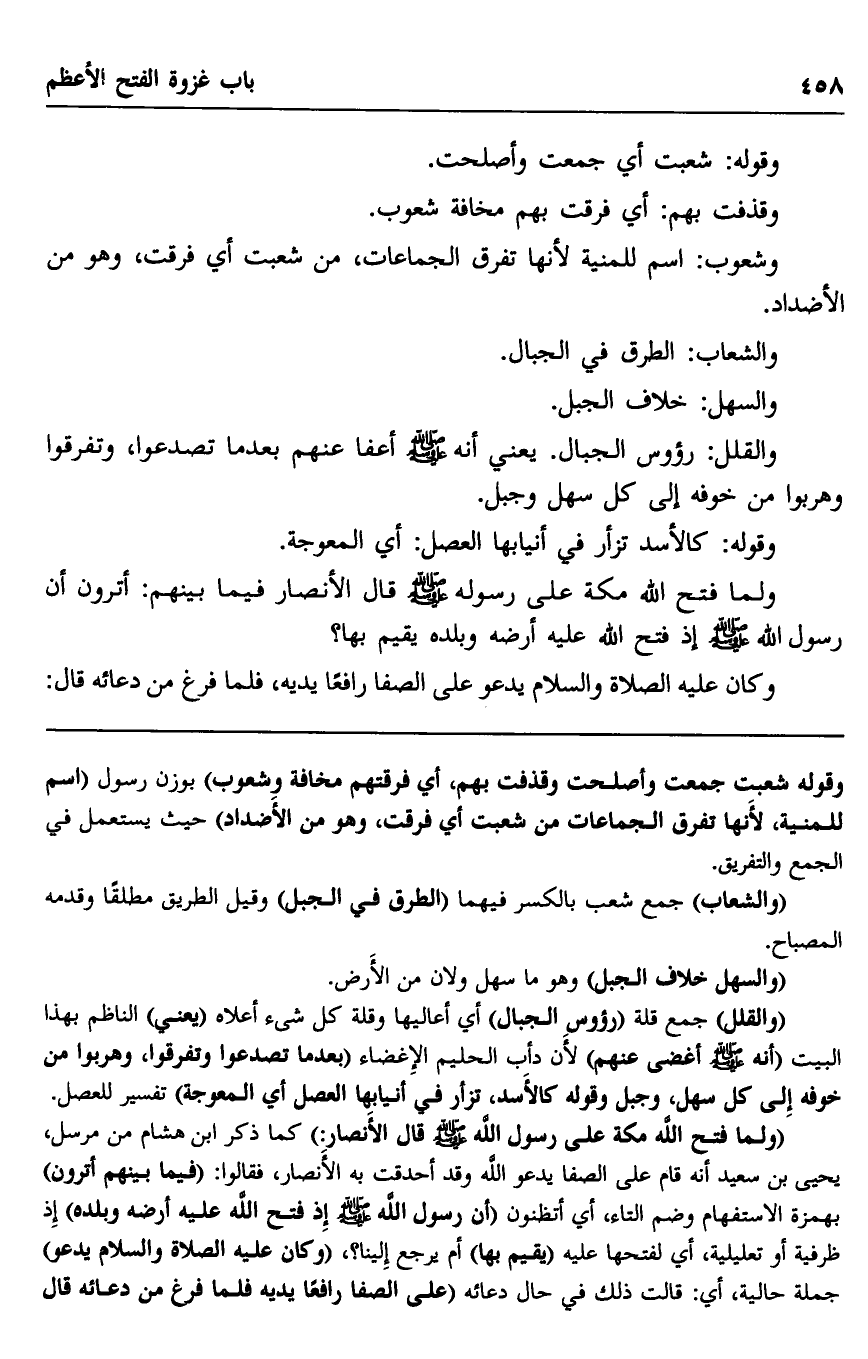 ٤٥٨ باب غزوة الفتح الأعظم
وقوله: شعبت أي جمعت وأصلحت.
وقذفت بهم: أي فرقت بهم مخافة شعوب.
وشعوب: اسم للمنية لأنها تفرق الجماعات، من شعبت أي فرقت، وهو من
الأضداد.
والشعاب: الطرق في الجبال.
والسهل: خلاف الجبل.
والقلل: رؤوس الجبال. يعني أنه ﷺ أعفا عنهم بعدما تصدعوا، وتفرقوا
وهربوا من خوفه إلى كل سهل وجبل.
وقوله: كالأسد تزأر في أنيابها العصل: أي المعوجة.
ولما فتح الله مكة على رسوله ﷺ قال الأنصار فيما بينهم: أترون أن
رسول الله ﷺ إذ فتح الله عليه أرضه وبلده يقيم بها؟
وكان عليه الصلاة والسلام يدعو على الصفا رافعًا يديه، فلما فرغ من دعائه قال:
وقوله شعبت جمعت وأصلحت وقذفت بهم، أي فرقتهم مخافة وشعوب) بوزن رسول (اسم
للمنية، لأَنها تفرق الجماعات من شعبت أي فرقت، وهو من الأَضداد) حيث يستعمل في
الجمع والتفريق.
(والشعاب) جمع شعب بالكسر فيهما (الطرق في الجبل) وقيل الطريق مطلقًا وقدمه
المصباح.
(والسهل خلاف الجبل) وهو ما سهل ولان من الأَرض.
(والقلل) جمع قلة (رؤوس الجبال) أي أعاليها وقلة كل شيء أعلاه (يعني) الناظم بهذا
البيت (أنه ﷺ أغضى عنهم) لأَن دأب الحليم الإِغضاء (بعدما تصدعوا وتفرقوا، وهربوا من
خوفه إِلى كل سهل، وجبل وقوله كالأَسد، تزأر في أنيابها العصل أي المعوجة) تفسير للعصل.
(ولما فتح اللَّه مكة على رسول اللَّه ﷺ قال الأَنصار:) كما ذكر ابن هشام من مرسل،
يحيى بن سعيد أنه قام على الصفا يدعو اللَّه وقد أحدقت به الأَنصار، فقالوا: (فيما بينهم أترون)
بهمزة الاستفهام وضم التاء، أي أتظنون (أن رسول اللَّه ﷺ إِذ فتح اللَّه عليه أرضه وبلده) إِذ
ظرفية أو تعليلية، أي لفتحها عليه (يقيم بها) أم يرجع إِلينا؟، (وكان عليه الصلاة والسلام يدعو)
جملة حالية، أي: قالت ذلك في حال دعائه (على الصفا رافعًا يديه فلما فرغ من دعائه قال